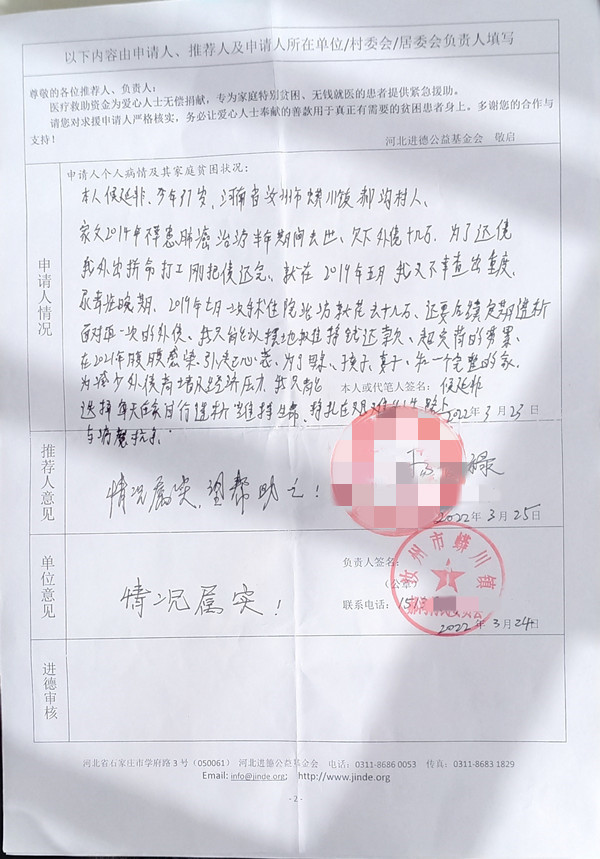 以下内容由申请人、推荐人及申请人所在单位/村委会/居委会负责人填写
尊敬的各位推荐人、负责人：
医疗救助资金为爱心人士无偿捐献，专为家庭特别贫困、无钱就医的患者提供紧急援助。
请您对求援申请人严格核实，务必让爱心人士奉献的善款用于真正有需要的贫困患者身上。多谢您的合作与
支持！
河北进德公益基金会 敬启
申请人情况
申请人个人病情及其家庭贫困状况：
本人侯延非，今年37岁，河南省汝州市蟒川镇郝沟村人、
家父2014年不幸患肺癌治疗半年期间去世、欠下外债十几万，为了还债
我外出拼命打工刚把债还完、就在2019年五月我又不幸查出重度、
尿毒症晚期、2019七月一次手术住院治疗就花去十几万、还要后续定期透析
面对再一次的外债、我只能以摆地摊维持线还款、超负荷的劳累、
在2021年腹膜感染、引起心衰、为了母亲、孩子、妻子、和一个完整的家、
为减少外债考虑及经济压力、我只能
选择每天在家自行透析维持生命、挣扎在艰难
与病魔抗争、
本人或代笔人签名：侯延非
2022年3月23日
推荐人意见
情况属实，望帮助之！
禄
2022年3月25日
单位意见
情况属实！
负责人签名：
（公章）
联系电话：151
汝州市蟒川镇
2022年3月24日
进德审核
河北省石家庄市学府路3号（050061） 河北进德公益基金会 电话：0311-8686 0053 传真：0311-8683 1829
Email: info@jinde.org; http://www.jinde.org
- 2 -